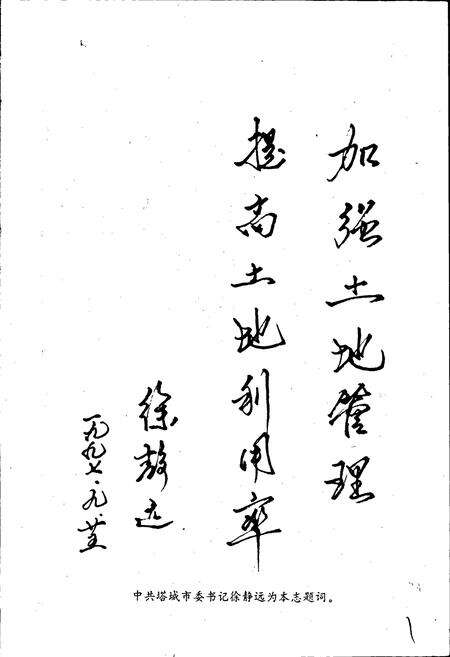 加强土地管理
提高土地利用率
徐静远
一九九七·九·廿
中共塔城市委书记徐静远为本志题词。